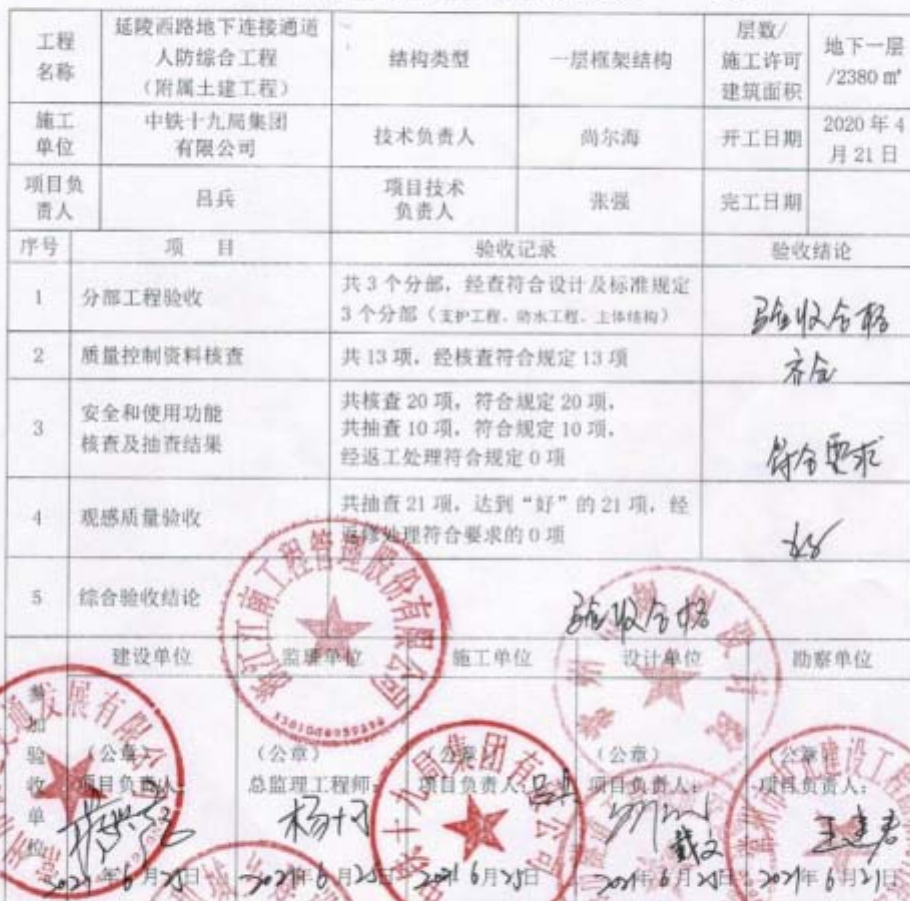 工程
名称
延陵西路地下连接通道
人防综合工程
（附属土建工程）
结构类型
一层框架结构
层数/
施工许可
建筑面积
地下一层
/2380 ㎡
施工
单位
中铁十九局集团
有限公司
技术负责人
尚尔海
开工日期
2020 年 4
月 21 日
项目负
责人
吕兵
项目技术
负责人
张强
完工日期
序号
项 目
验收记录
验收结论
1
分部工程验收
共 3 个分部，经查符合设计及标准规定
3 个分部（支护工程、防水工程、主体结构）
验收合格
2
质量控制资料核查
共 13 项，经核查符合规定 13 项
齐全
3
安全和使用功能
核查及抽查结果
共核查 20 项，符合规定 20 项，
共抽查 10 项，符合规定 10 项，
经返工处理符合规定 0 项
符合要求
4
观感质量验收
共抽查 21 项，达到“好”的 21 项，经
返修处理符合要求的 0 项
好
5
综合验收结论
验收合格
参加验收单位
建设单位
监理单位
施工单位
设计单位
勘察单位
（公章）
项目负责人：
2021年6月25日
（公章）
总监理工程师：
2021年6月25日
（公章）
项目负责人：吕兵
2021年6月25日
（公章）
项目负责人：
戴文
2021年6月25日
（公章）
项目负责人：
王建君
2021年6月21日
浙江江南工程管理股份有限公司
通发展有限公
十九局集团有限公司
建设工程